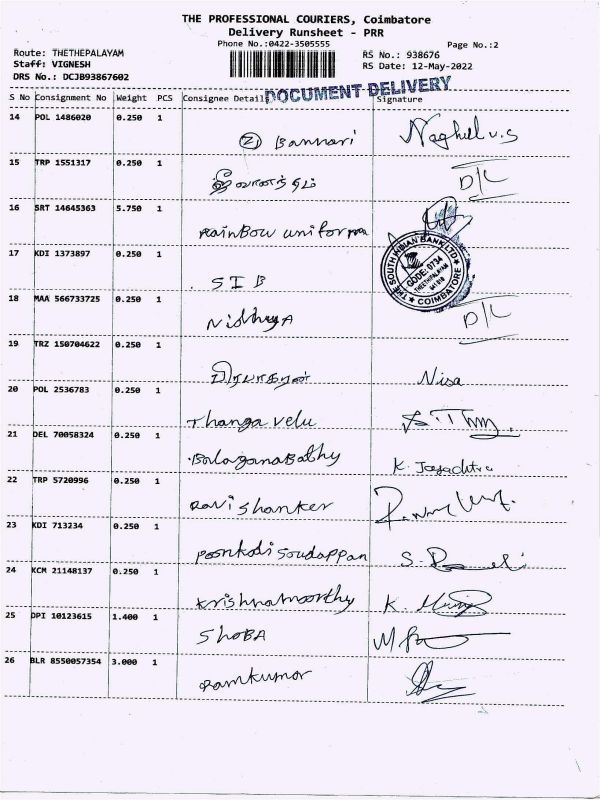 THE PROFESSIONAL COURIERS, Coimbatore
Delivery Runsheet - PRR
Phone No.:0422-3505555
Page No.:2
Route: THETHEPALAYAM
Staff: VIGNESH
DRS No.: DCJB93867602
RS No.: 938676
RS Date: 12-May-2022
DOCUMENT DELIVERY
S No Consignment No Weight PCS Consignee Details Signature
14 POL 1486020 0.250 1
② Bannari Naghul v.s
15 TRP 1551317 0.250 1
D/L
16 SRT 14645363 5.750 1
Rainbow uniform
17 KDI 1373897 0.250 1
SIB
THE SOUTH INDIAN BANK LTD. CODE: 0734 THETHIPALAYAM COIMBATORE
18 MAA 566733725 0.250 1
Nidhya D/L
19 TRZ 150704622 0.250 1
Nisa
20 POL 2536783 0.250 1
Thangavelu
21 DEL 70058324 0.250 1
Balaganabathy K. Jeyachitra
22 TRP 5720996 0.250 1
Ravi shanker
23 KDI 713234 0.250 1
Poonkodi Soudappan
24 KCM 21148137 0.250 1
Krishnamoorthy
25 DPI 10123615 1.400 1
SHOBA
26 BLR 8550057354 3.000 1
Ramkumar